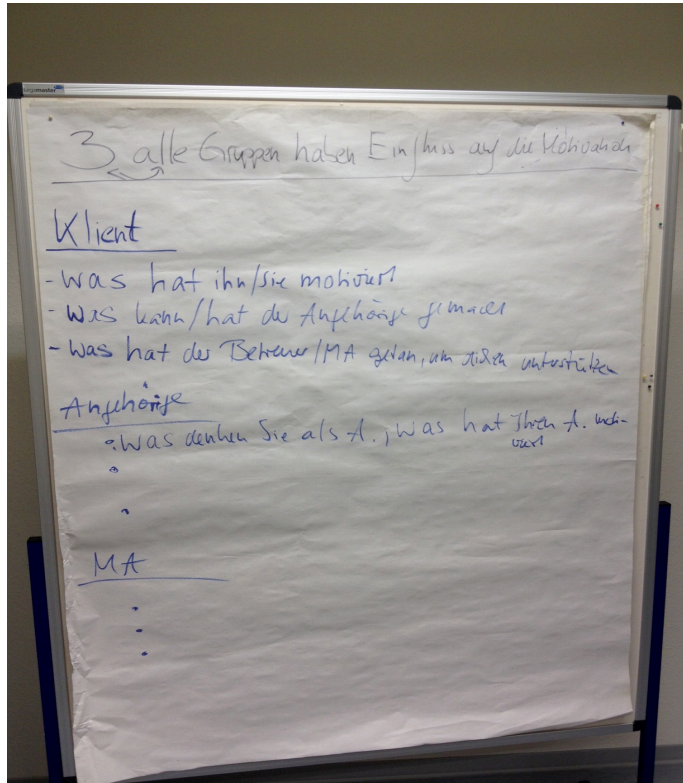 legamaster
3 alle Gruppen haben Einfluss auf die Motivation
Klient
- Was hat ihn/sie motiviert
- Was kann/hat der Angehörige gemacht
- Was hat der Betreuer/MA getan, um zu unterstützen
Angehörige
• Was denken Sie als A., was hat Ihren A. moti-
viert
•
•
MA
•
•
•